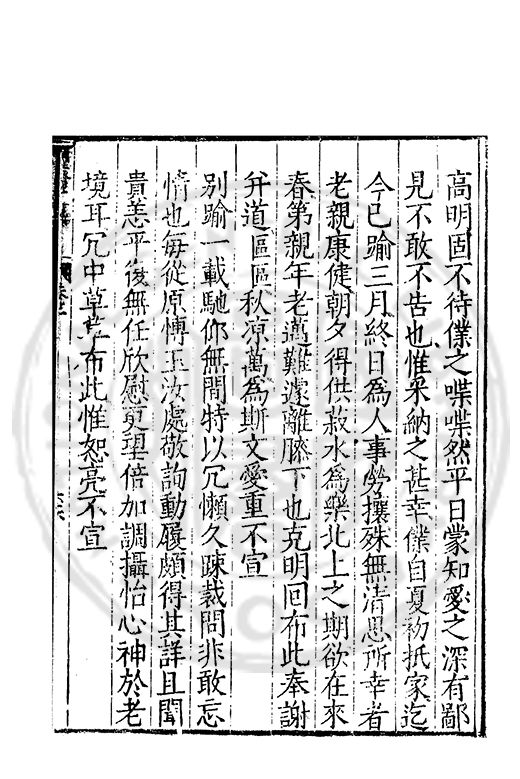 高明固不待僕之喋喋然平日蒙知愛之深有鄙
見不敢不告也惟采納之甚幸僕自夏初抵家迄
今已踰三月終日為人事勞攘殊無清思所幸者
老親康健朝夕得供菽水為樂北上之期欲在來
春第親年老邁難遽離膝下也克明回布此奉謝
并道區區秋凉萬為斯文愛重不宣
別踰一載馳仰無間特以冗懶久疎裁問非敢忘
情也每從原博玉汝處敬詢動履頗得其詳且聞
貴恙平復無任欣慰更望倍加調攝怡心神於老
境耳冗中草草布此惟恕亮不宣